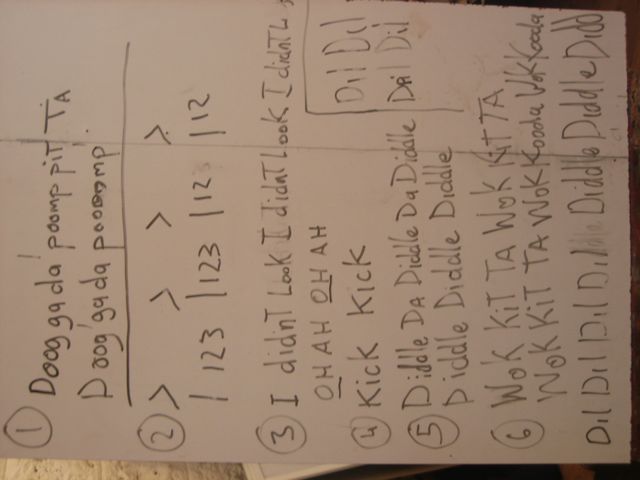 ① Doog ga da poomp pit TA
Doog ga da poooomp
② > > > >
| 123 | 123 | 12 | 12
③ I didnT Look I didnT Look I didnT L
OH AH OH AH
④ Kick Kick
Dil Dil
Dil Dil
⑤ Diddle DA Diddle Da Diddle
Diddle Diddle Diddle
⑥ WoK KiT TA WoK KiT TA
WoK KiT TA WoK Kooda WoK Kooda
Dil Dil Dil Diddle Diddle Diddle Didd